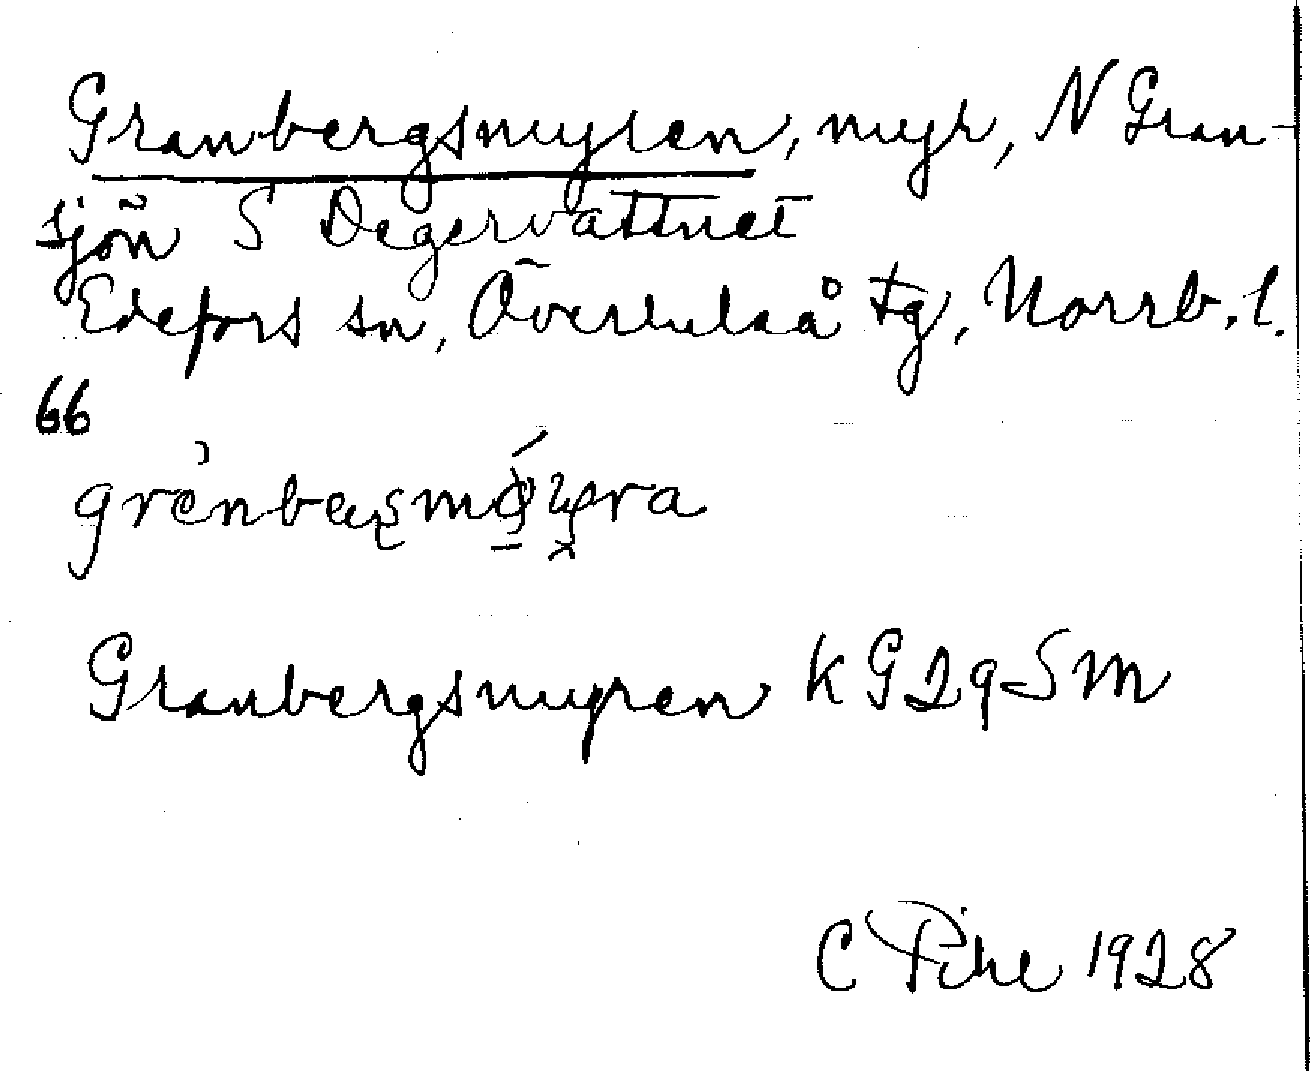 Granbergsmyren, myr, N Gran-
sjön S Degervattnet
Edefors sn, Överluleå tg, Norrb. l.
66
Granbergsmyren kG29Sm
C Pihl 1928